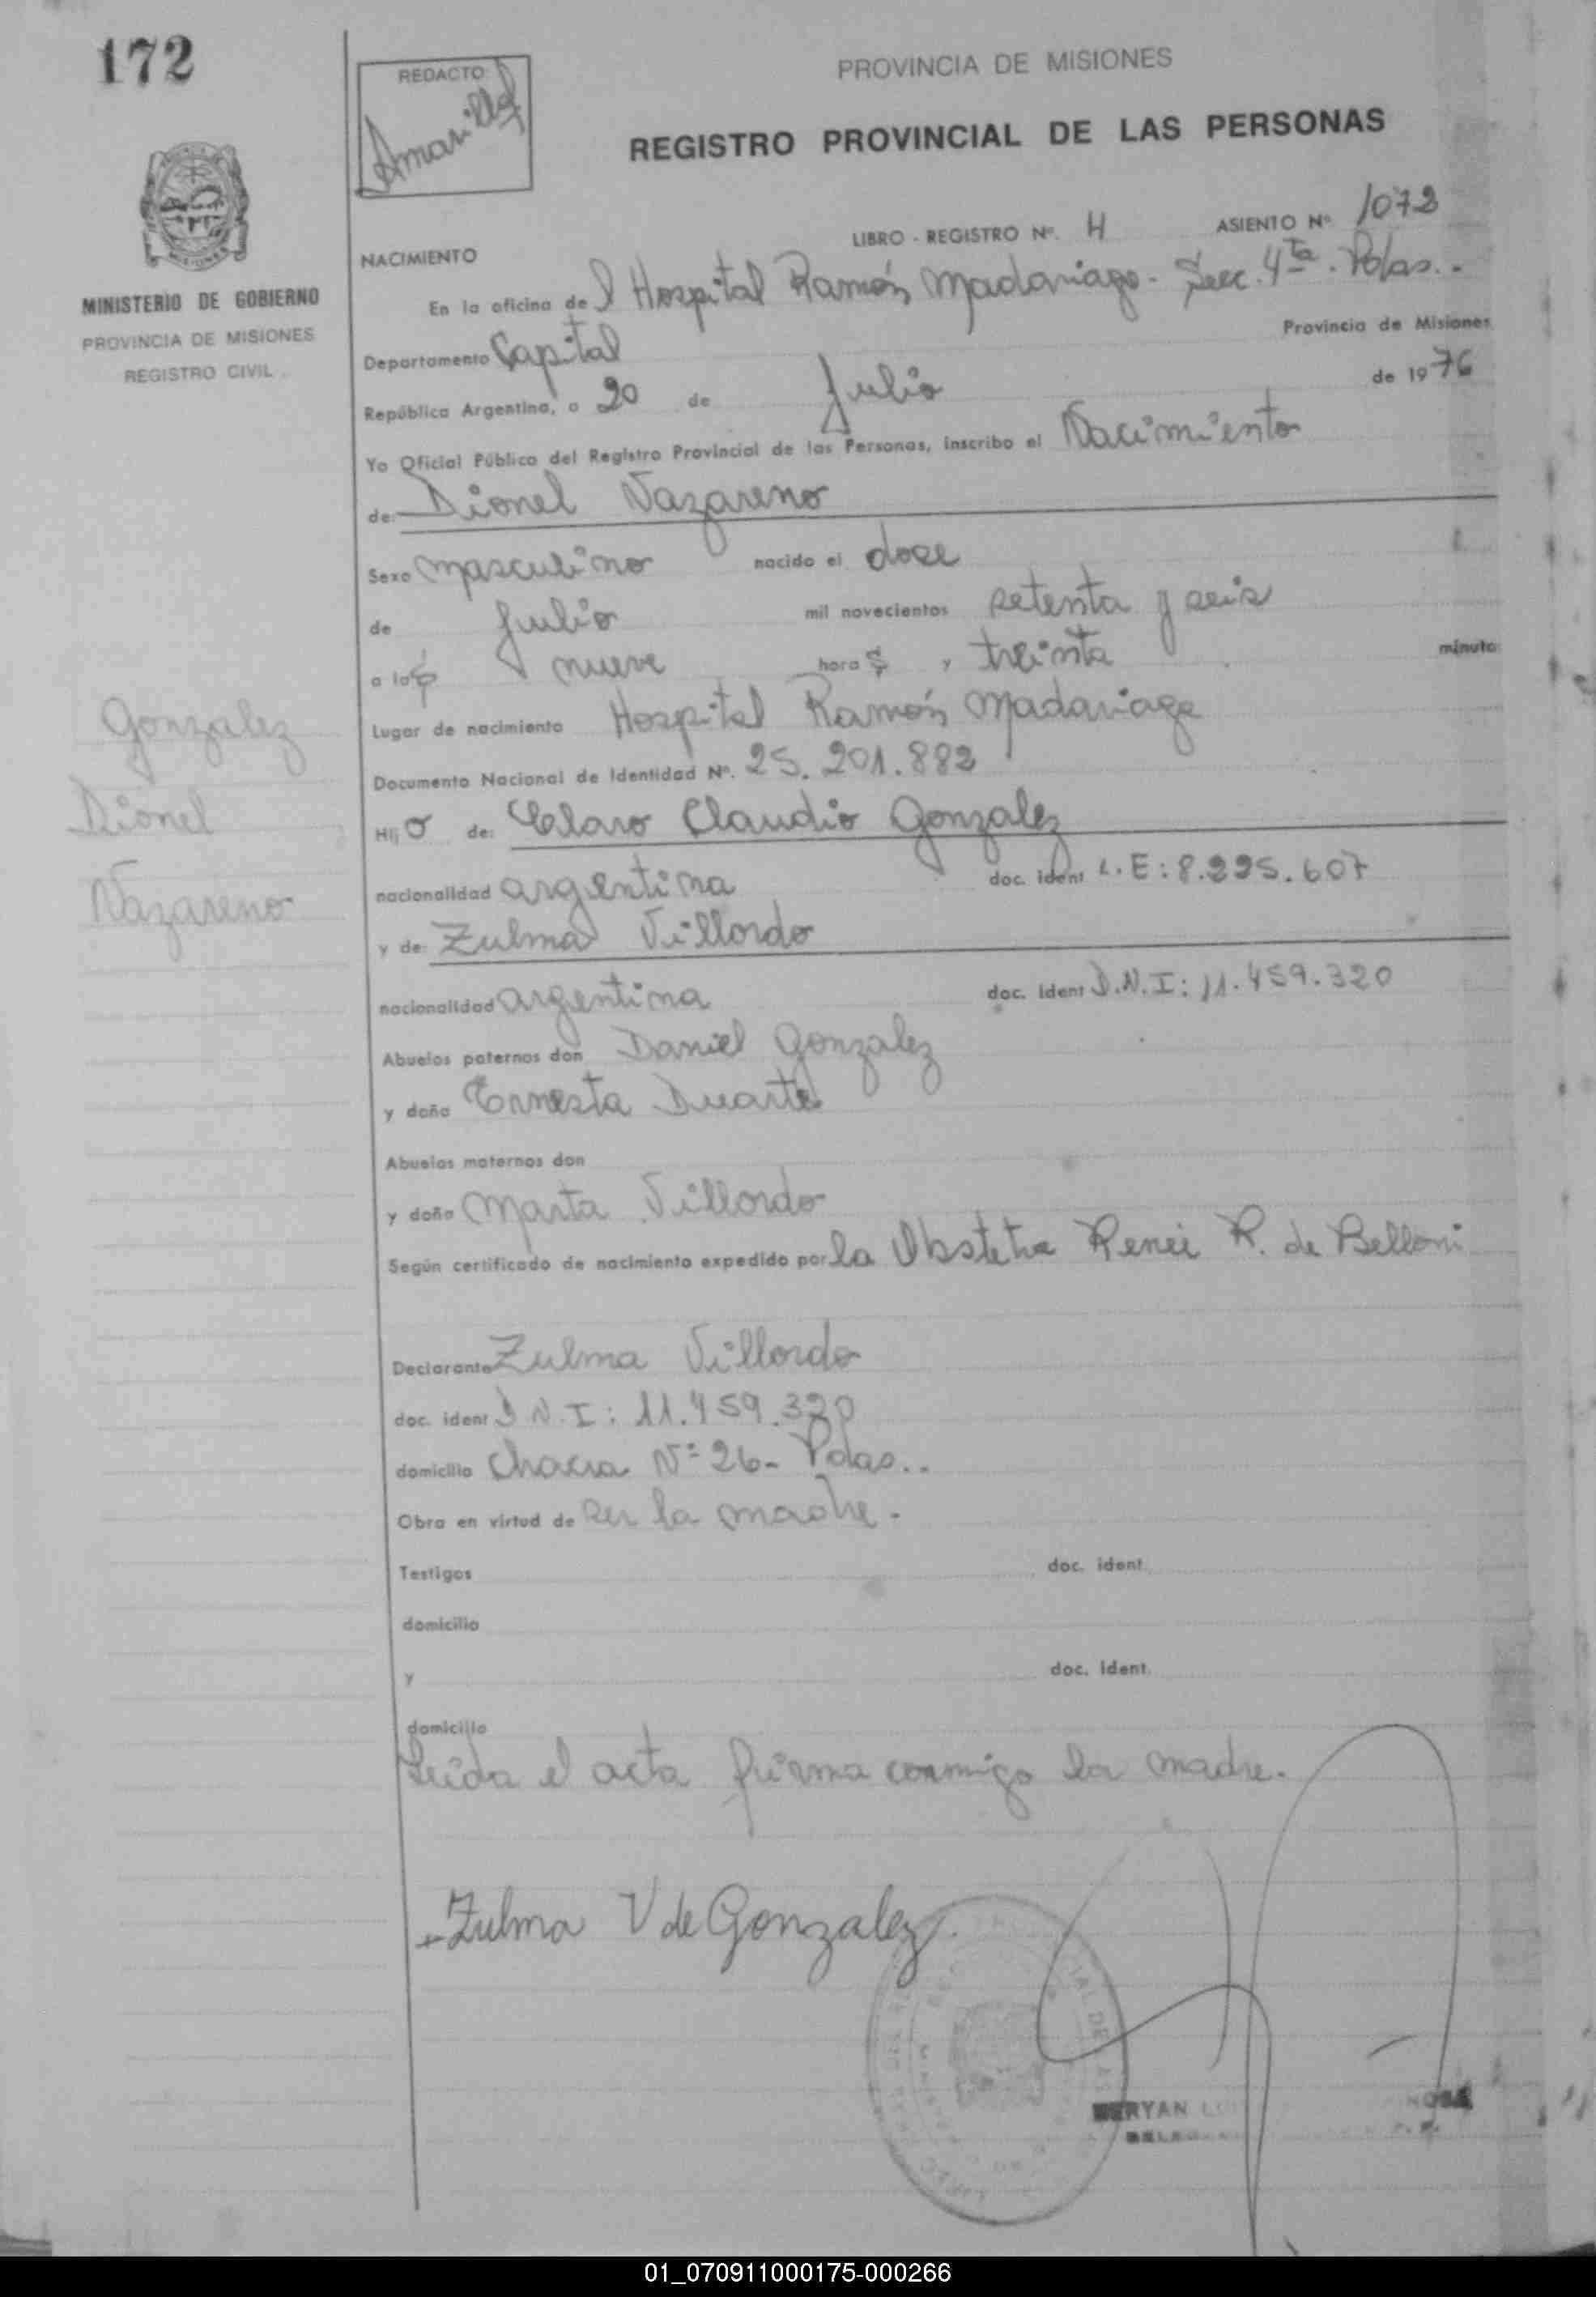 172
REDACTO
PROVINCIA DE MISIONES
REGISTRO PROVINCIAL DE LAS PERSONAS
MINISTERIO DE GOBIERNO
PROVINCIA DE MISIONES
REGISTRO CIVIL
LIBRO - REGISTRO Nº. H ASIENTO Nº 1072
NACIMIENTO
En la oficina del Hospital Ramón Madariaga - Secc. 4ta. Pdas..
Departamento Capital Provincia de Misiones
República Argentina, a 20 de Julio de 1976
Yo Oficial Público del Registro Provincial de las Personas, inscribo el Nacimiento
de: Dionel Nazareno
Sexo masculino nacido el doce
de Julio mil novecientos setenta y seis
a las nueve horas y treinta minuto
Lugar de nacimiento Hospital Ramón Madariaga
Documento Nacional de Identidad Nº. 25.201.882
Gonzalez
Dionel
Nazareno
Hijo de: Claro Claudio Gonzalez
nacionalidad argentina doc. ident L.E: 8.295.607
y de: Zulma Villordo
nacionalidad argentina doc. ident D.N.I: 11.459.320
Abuelos paternos don Daniel Gonzalez
y doña Ernesta Duarte
Abuelos maternos don
y doña Marta Villordo
Según certificado de nacimiento expedido por la Obstetra Reneé R. de Belloni
Declarante Zulma Villordo
doc. ident D.N.I: 11.459.320
domicilio Chacra Nº 26- Pdas..
Obra en virtud de ser la madre.
Testigos doc. ident.
domicilio
y doc. ident.
domicilio
Leida el acta firma conmigo la madre.
Zulma V de Gonzalez
01_070911000175-000266